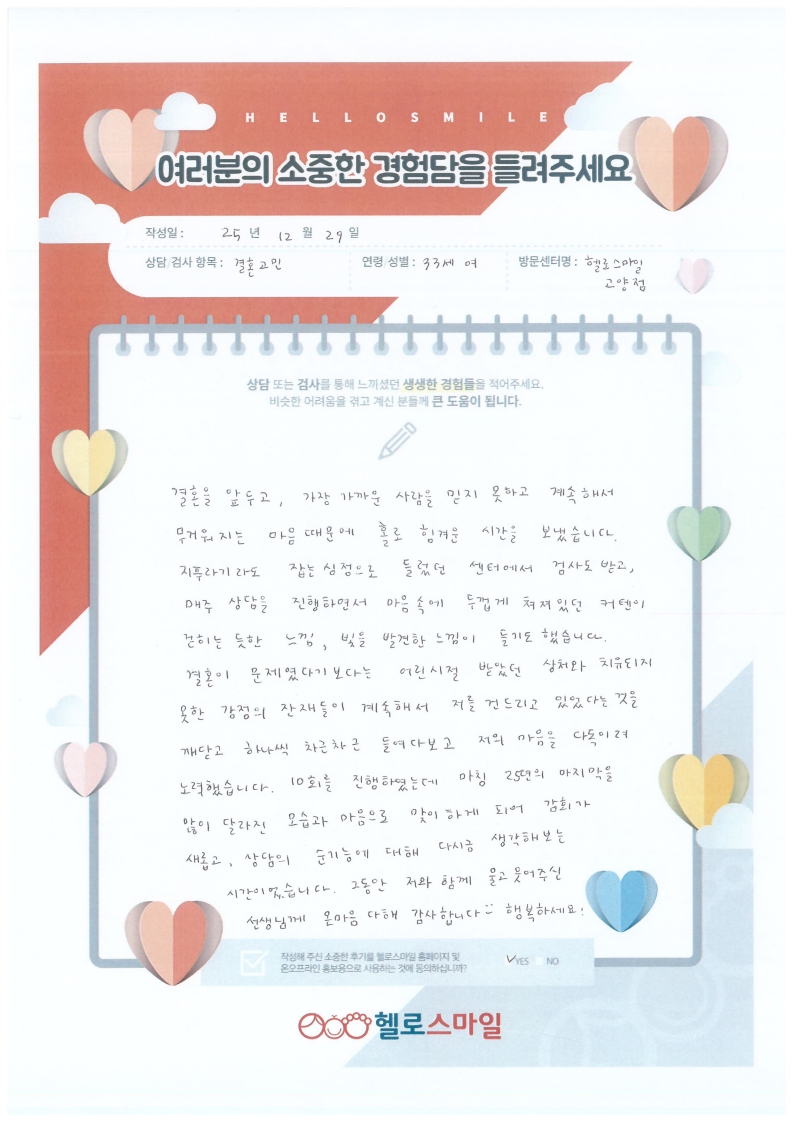 HELLOSMILE
여러분의 소중한 경험담을 들려주세요
작성일 : 25 년 12 월 29 일
상담/검사 항목 : 결혼고민 연령/성별 : 33세 여 방문센터명 : 헬로스마일
고양점
상담 또는 검사를 통해 느끼셨던 생생한 경험들을 적어주세요.
비슷한 어려움을 겪고 계신 분들께 큰 도움이 됩니다.
결혼을 앞두고, 가장 가까운 사람을 믿지 못하고 계속해서
무거워지는 마음때문에 홀로 힘겨운 시간을 보냈습니다.
지푸라기라도 잡는심정으로 들렀던 센터에서 검사도 받고,
매주 상담을 진행하면서 마음속에 두껍게 쳐져있던 커텐이
걷히는 듯한 느낌, 빛을 발견한 느낌이 들기도 했습니다.
결혼이 문제였다기보다는 어린시절 받았던 상처와 치유되지
못한 감정의 잔재들이 계속해서 저를 건드리고 있었다는 것을
깨닫고 하나씩 차근차근 들여다보고 저의 마음을 다독이려
노력했습니다. 10회를 진행하였는데 마침 25년의 마지막을
많이 달라진 모습과 마음으로 맞이하게 되어 감회가
새롭고, 상담의 순기능에 대해 다시금 생각해보는
시간이었습니다. 그동안 저와 함께 울고 웃어주신
선생님께 온마음 다해 감사합니다 행복하세요!
작성해 주신 소중한 후기를 헬로스마일 홈페이지 및
온오프라인 홍보용으로 사용하는 것에 동의하십니까? YES NO
헬로스마일